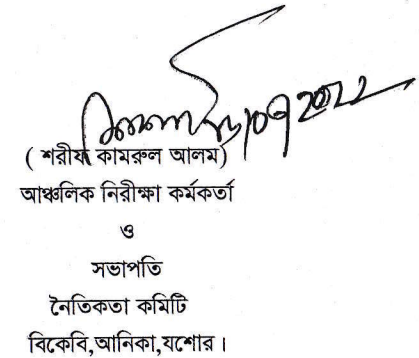 ( শরীফ কামরুল আলম)
আঞ্চলিক নিরীক্ষা কর্মকর্তা
ও
সভাপতি
নৈতিকতা কমিটি
বিকেবি,আনিকা,যশোর।